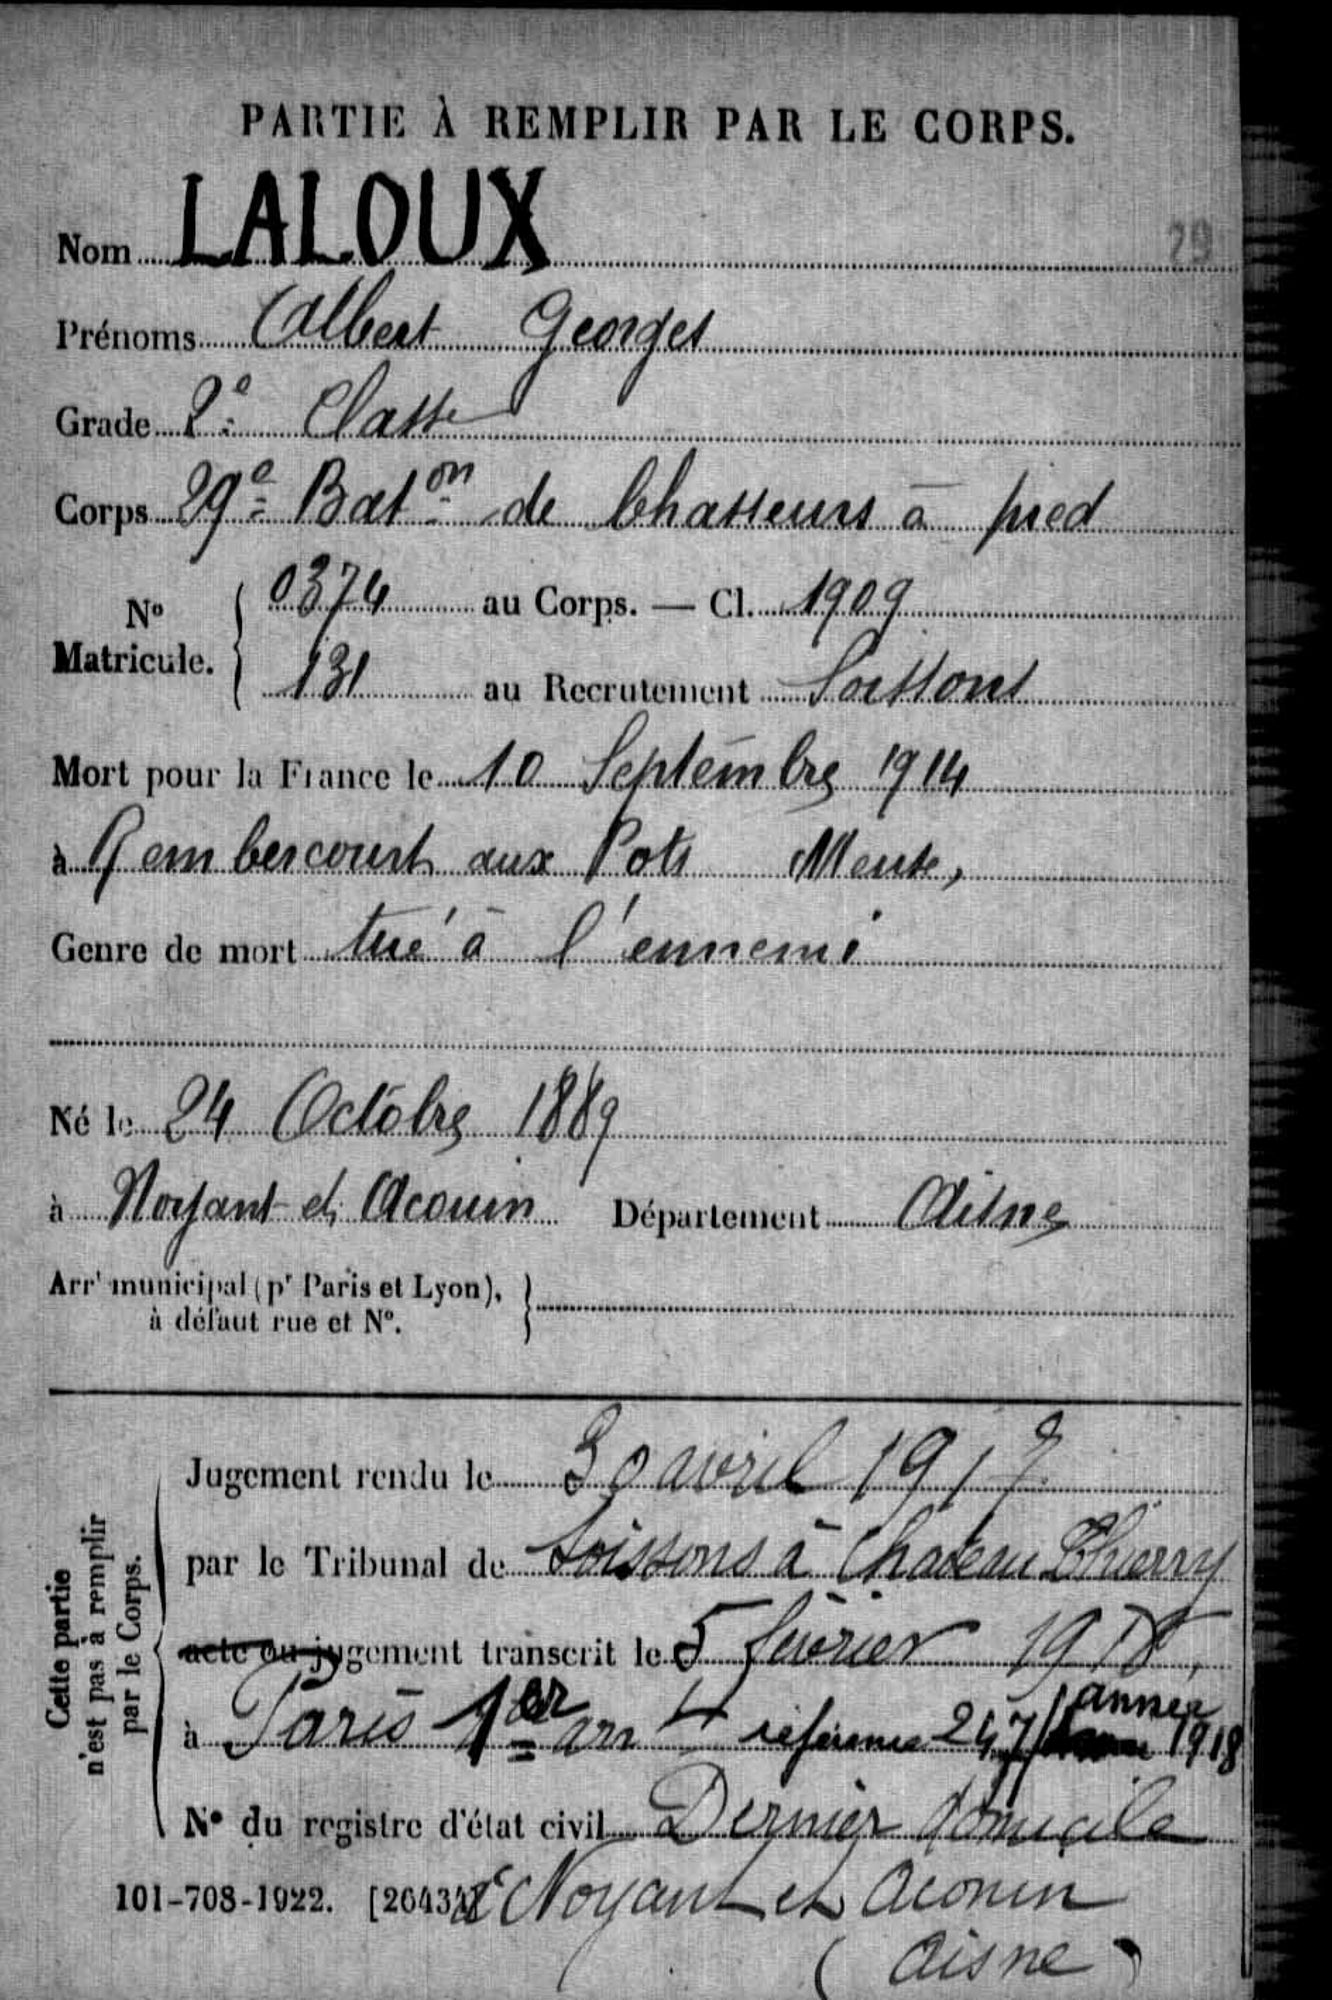 PARTIE À REMPLIR PAR LE CORPS.
Nom LALOUX
29
Prénoms Albert Georges
Grade 2e Classe
Corps 29e Baton de Chasseurs à pied
No Matricule. { 0374 au Corps. — Cl. 1909
131 au Recrutement Soissons
Mort pour la France le 10 Septembre 1914
à Rembercourt aux Pots Meuse,
Genre de mort tué à l'ennemi
Né le 24 Octobre 1889
à Noyant et Acouin Département Aisne
Arrt municipal (pr Paris et Lyon),
à défaut rue et No. }
Cette partie
n'est pas à remplir
par le Corps.
Jugement rendu le 30 avril 1917
par le Tribunal de Soissons à Chateau Thierry
acte ou jugement transcrit le 5 février 1918
à Paris 1er arrt référence 247 année 1918
No du registre d'état civil Dernier domicile
101-708-1922. [26434] à Noyant et Aconin
(Aisne)